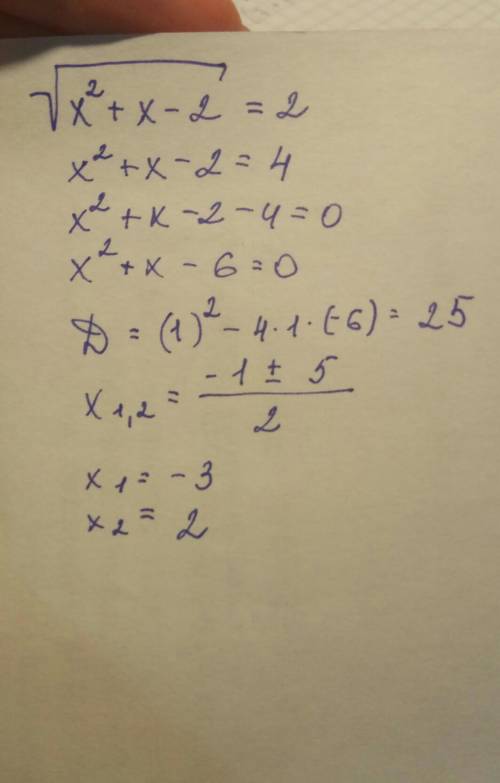 √(x² + x - 2) = 2
x² + x - 2 = 4
x² + x - 2 - 4 = 0
x² + x - 6 = 0
D = (1)² - 4·1·(-6) = 25
x₁,₂ = (-1 ± 5)/2
x₁ = -3
x₂ = 2